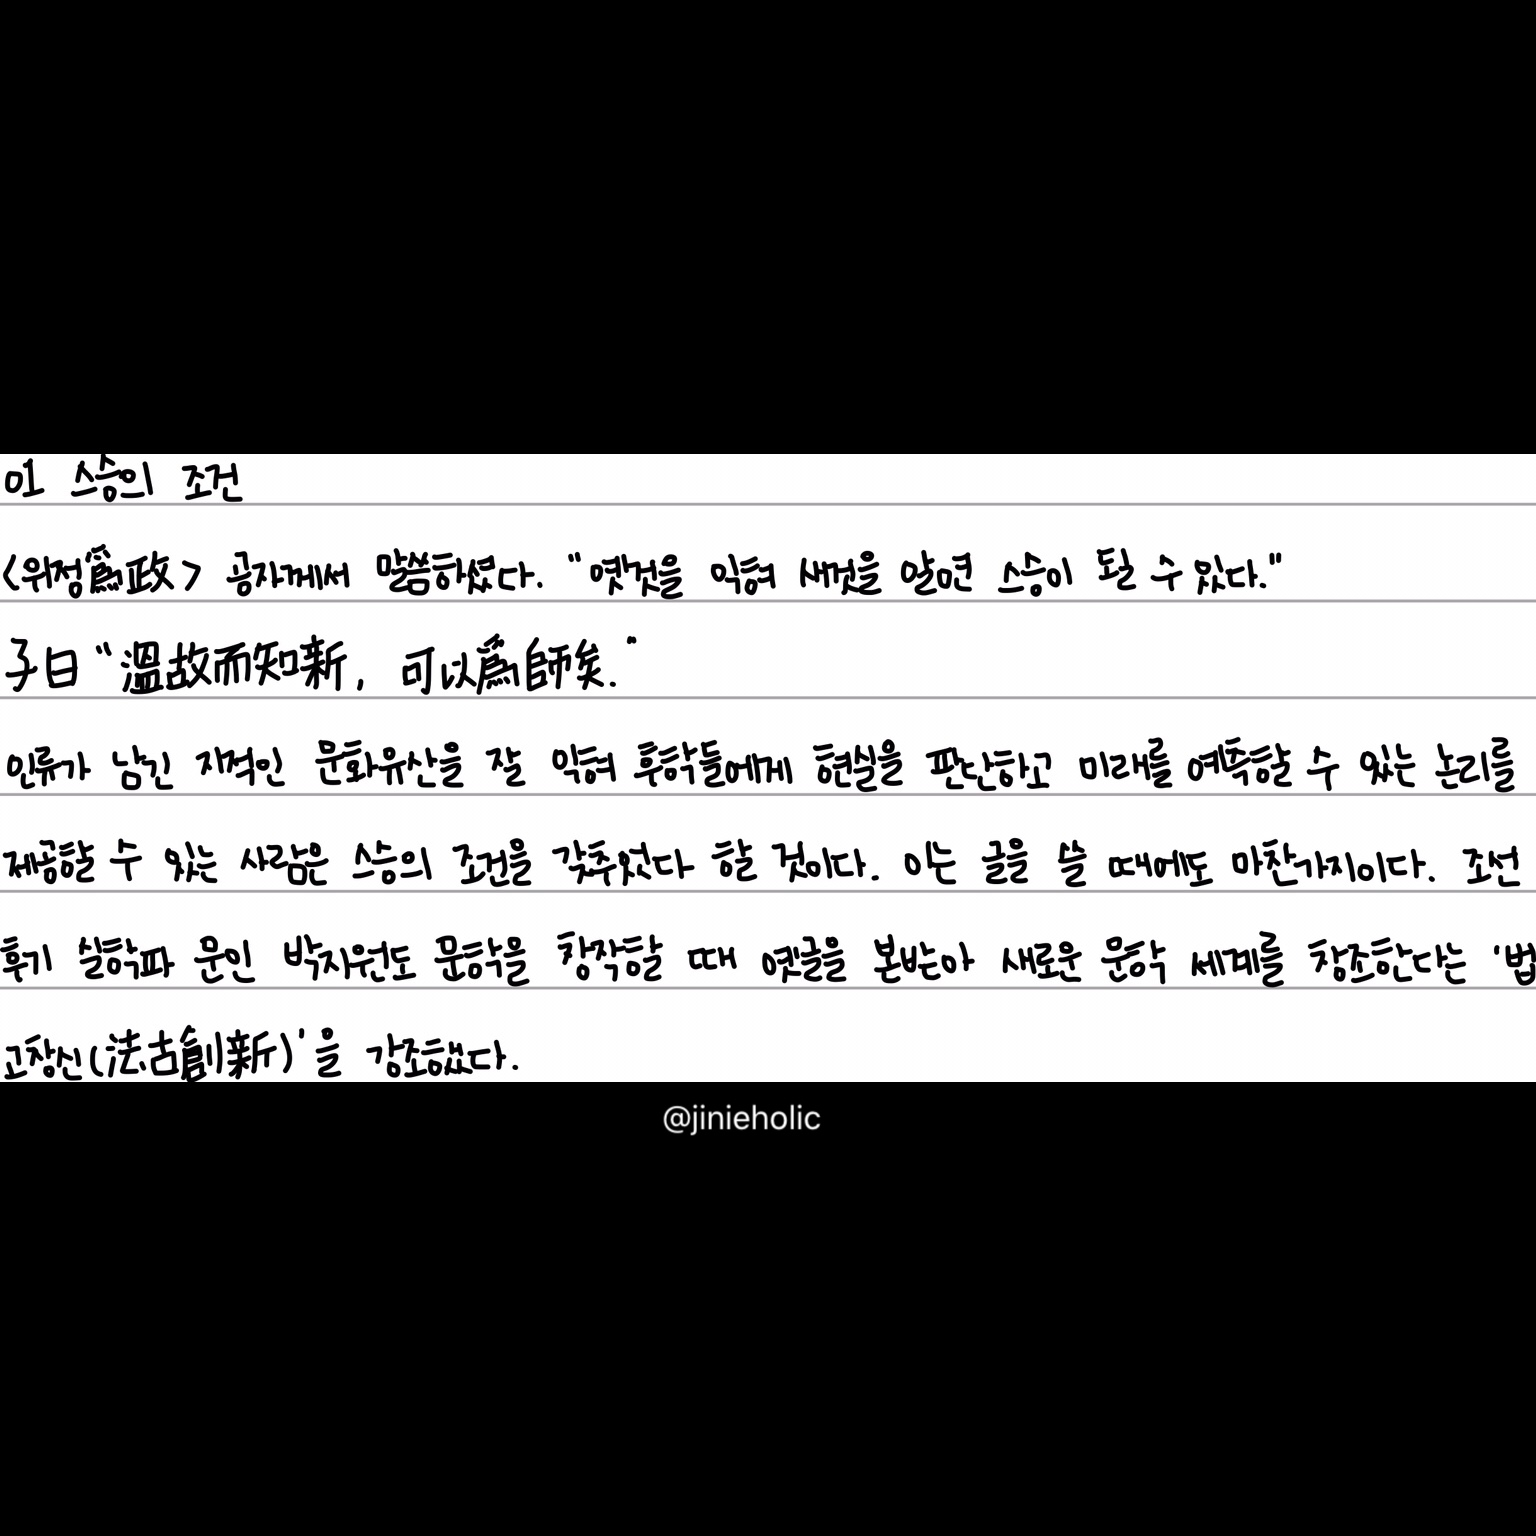 01 스승의 조건
<위정爲政> 공자께서 말씀하셨다. "옛것을 익혀 새것을 알면 스승이 될 수 있다."
子曰 "溫故而知新, 可以爲師矣."
인류가 남긴 지적인 문화유산을 잘 익혀 후학들에게 현실을 판단하고 미래를 예측할 수 있는 논리를
제공할 수 있는 사람은 스승의 조건을 갖추었다 할 것이다. 이는 글을 쓸 때에도 마찬가지이다. 조선
후기 실학파 문인 박지원도 문학을 창작할 때 옛글을 본받아 새로운 문학 세계를 창조한다는 '법
고창신(法古創新)'을 강조했다.
@jinieholic